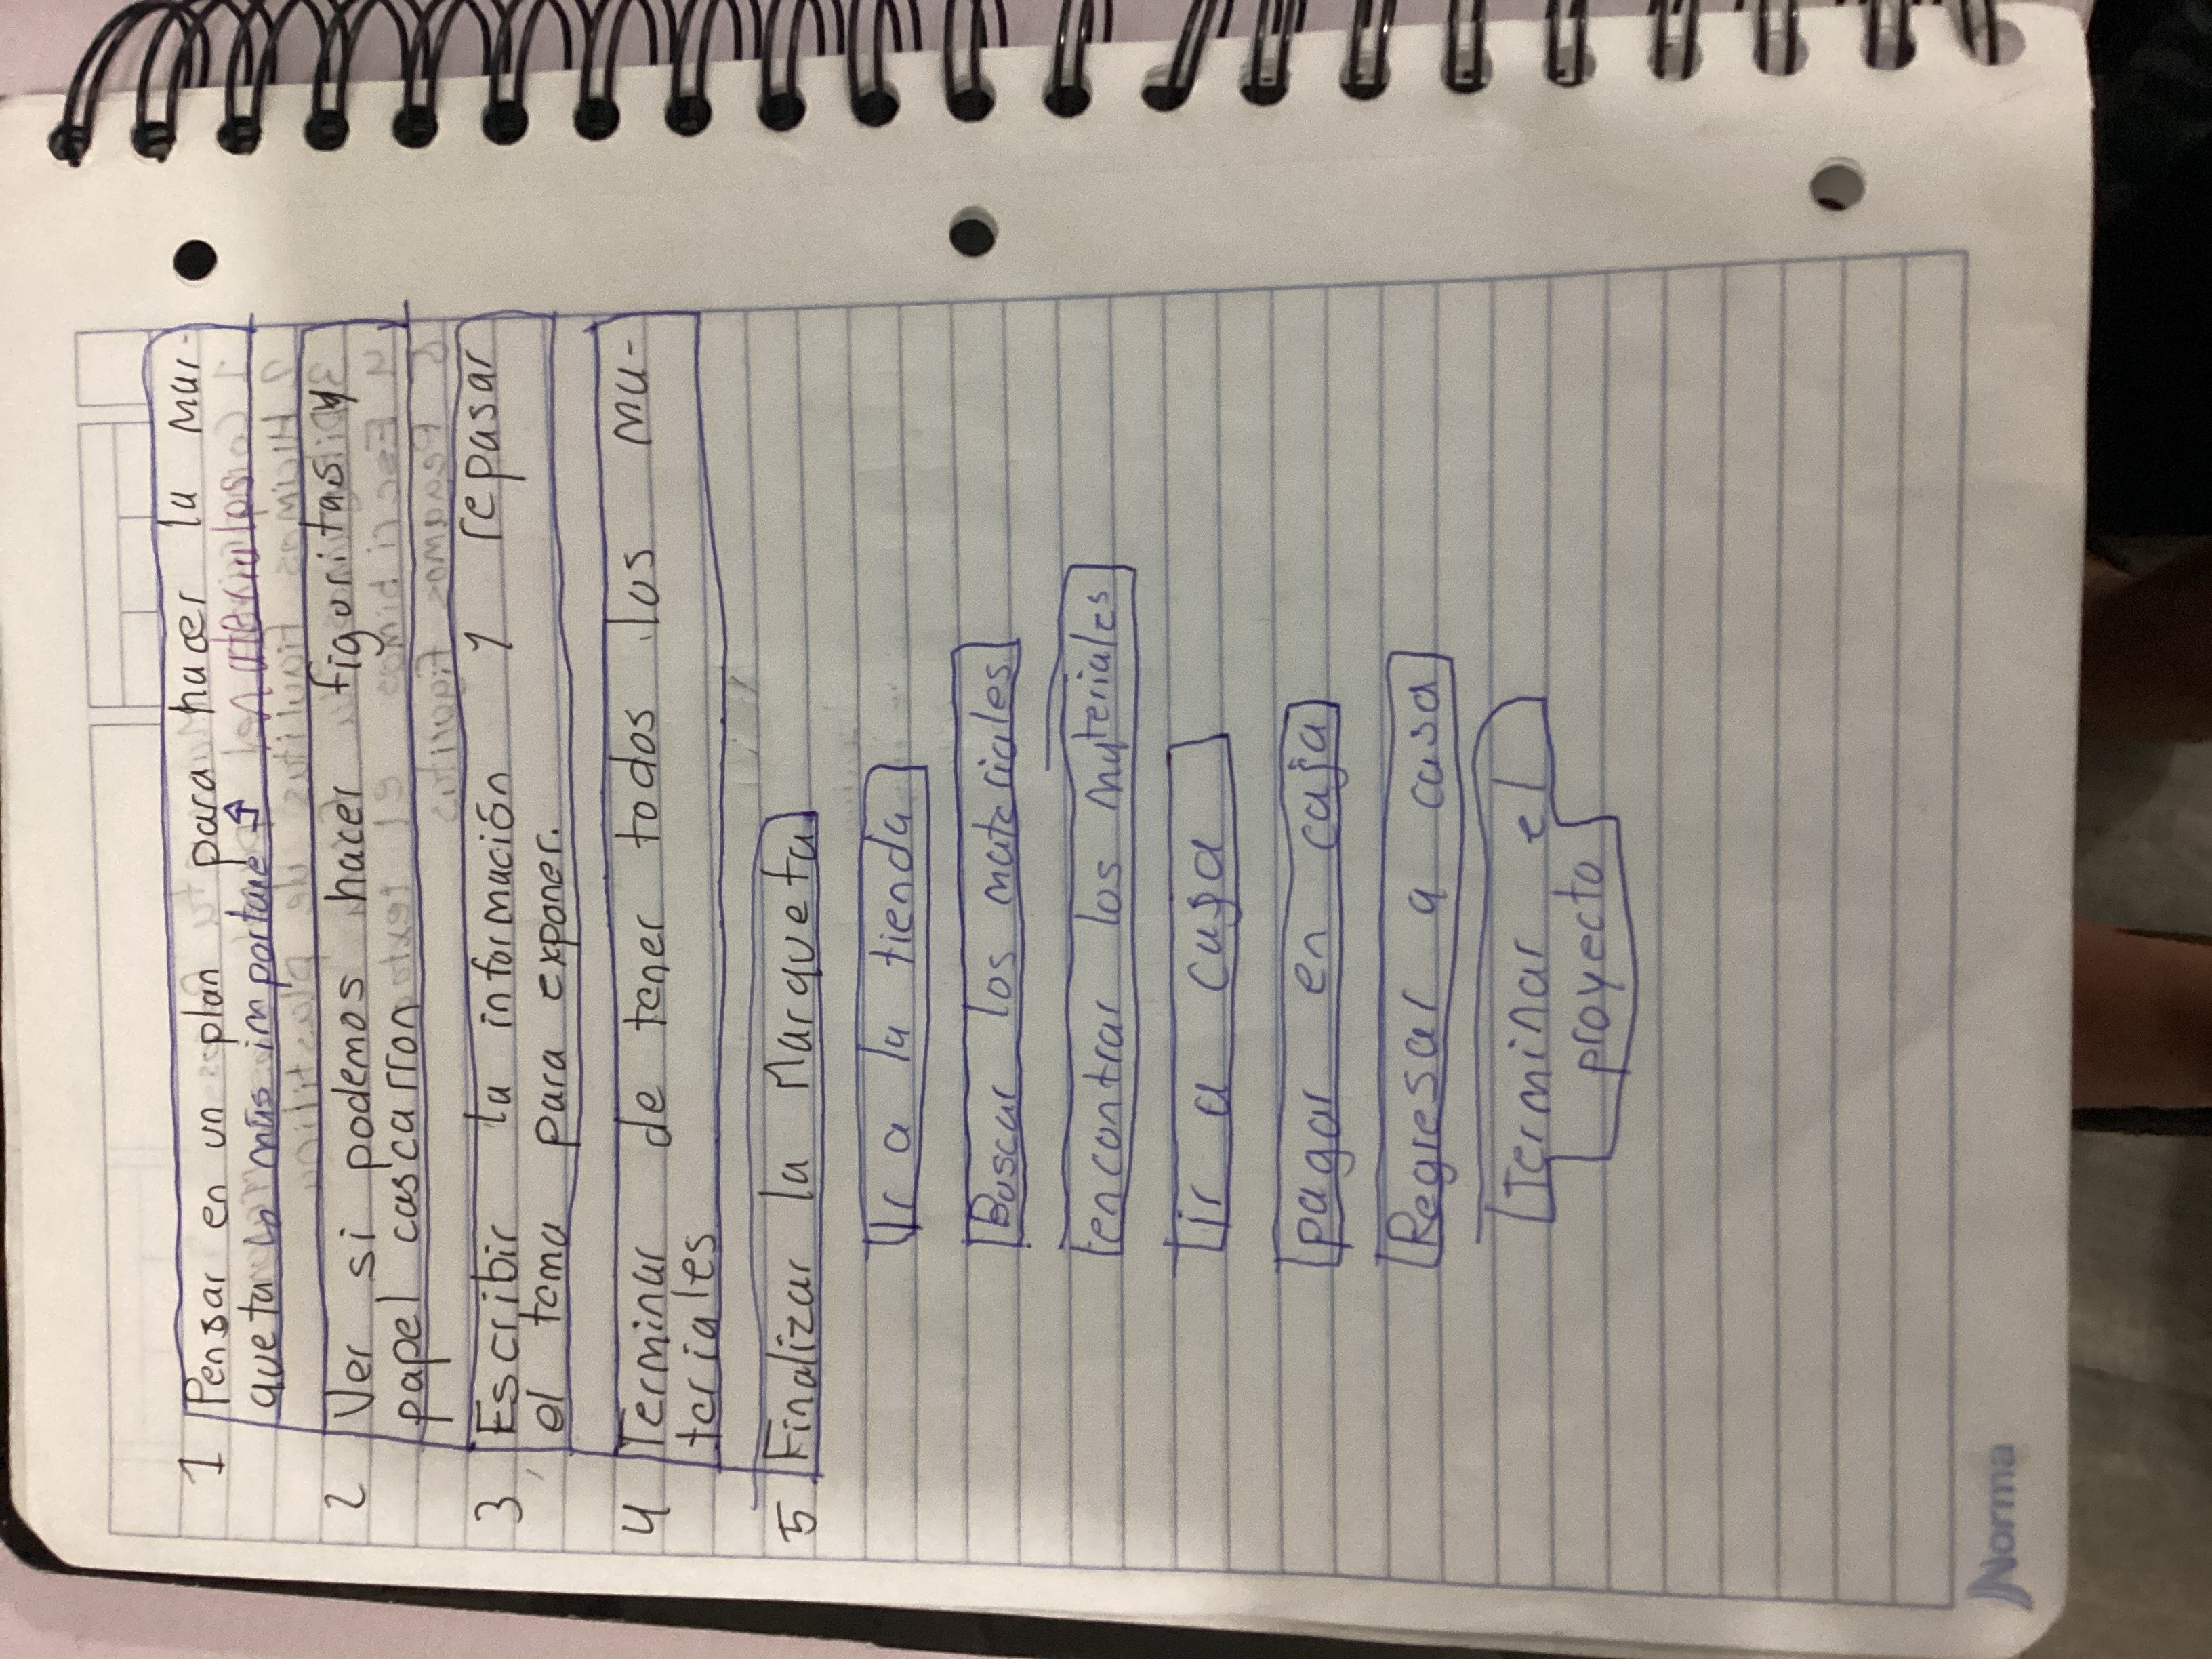 1 Pensar en un plan para hacer la Mar-
queta lo más importane
2 Ver si podemos hacer figuritas y
papel cascarron
3 Escribir la información y repasar
el tema para exponer.
4 Terminar de tener todos los ma-
teriales
5 Finalizar la Marqueta
Ir a la tienda
Buscar los materiales
encontrar los materiales
ir a casa
pagar en caja
Regresar a casa
Terminar el
proyecto
Norma